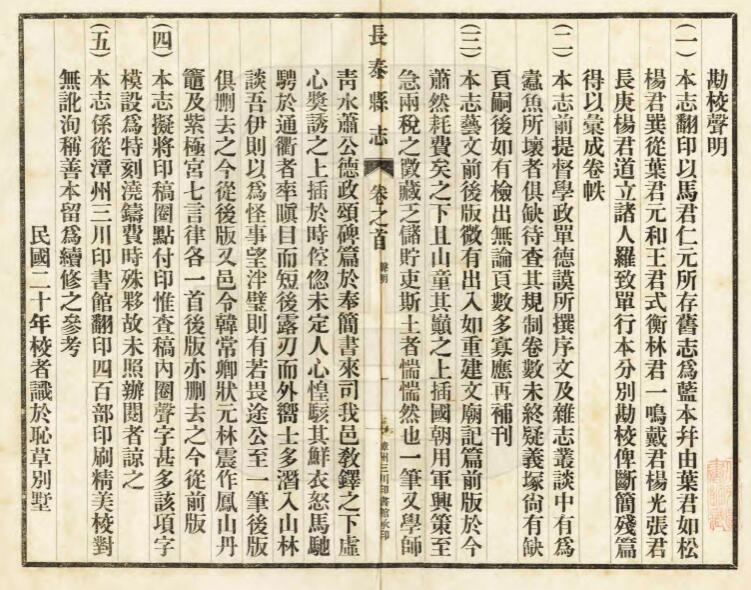 勘校聲明
（一）本志翻印以馬君仁元所存舊志爲藍本幷由葉君如松
楊君巽從葉君元和王君式衡林君一鳴戴君楊光張君
長庚楊君道立諸人羅致單行本分別勘校俾斷簡殘篇
得以彙成卷帙
（二）本志前提督學政單德謨所撰序文及雜志叢談中有爲
蠹魚所壞者俱缺待查其規制卷數未終疑義塚尙有缺
頁嗣後如有檢出無論頁數多寡應再補刊
（三）本志藝文前後版微有出入如重建文廟記篇前版於今
蕭然耗費矣之下且山童其巔之上插國朝用軍興策至
急兩稅之徵藏乏儲貯吏斯土者惴惴然也一筆又學師
長泰縣志
卷之首
聲明
一
漳州三川印書館承印
靑水蕭公德政頌碑篇於奉簡書來司我邑敎鐸之下虛
心奬誘之上插於時倥偬未定人心惶駭其鮮衣怒馬馳
騁於通衢者率瞋目而短後露刃而外嚮士多潛入山林
談吾伊則以爲怪事望泮璧則有若畏途公至一筆後版
俱删去之今從後版又邑令韓常卿狀元林震作鳳山丹
竈及紫極宮七言律各一首後版亦删去之今從前版
（四）本志擬將印稿圈點付印惟查稿內圈聲字甚多該項字
模設爲特刻澆鑄費時殊夥故未照辦閱者諒之
（五）本志係從漳州三川印書館翻印四百部印刷精美校對
無訛洵稱善本留爲續修之參考
民國二十年校者識於恥草別墅